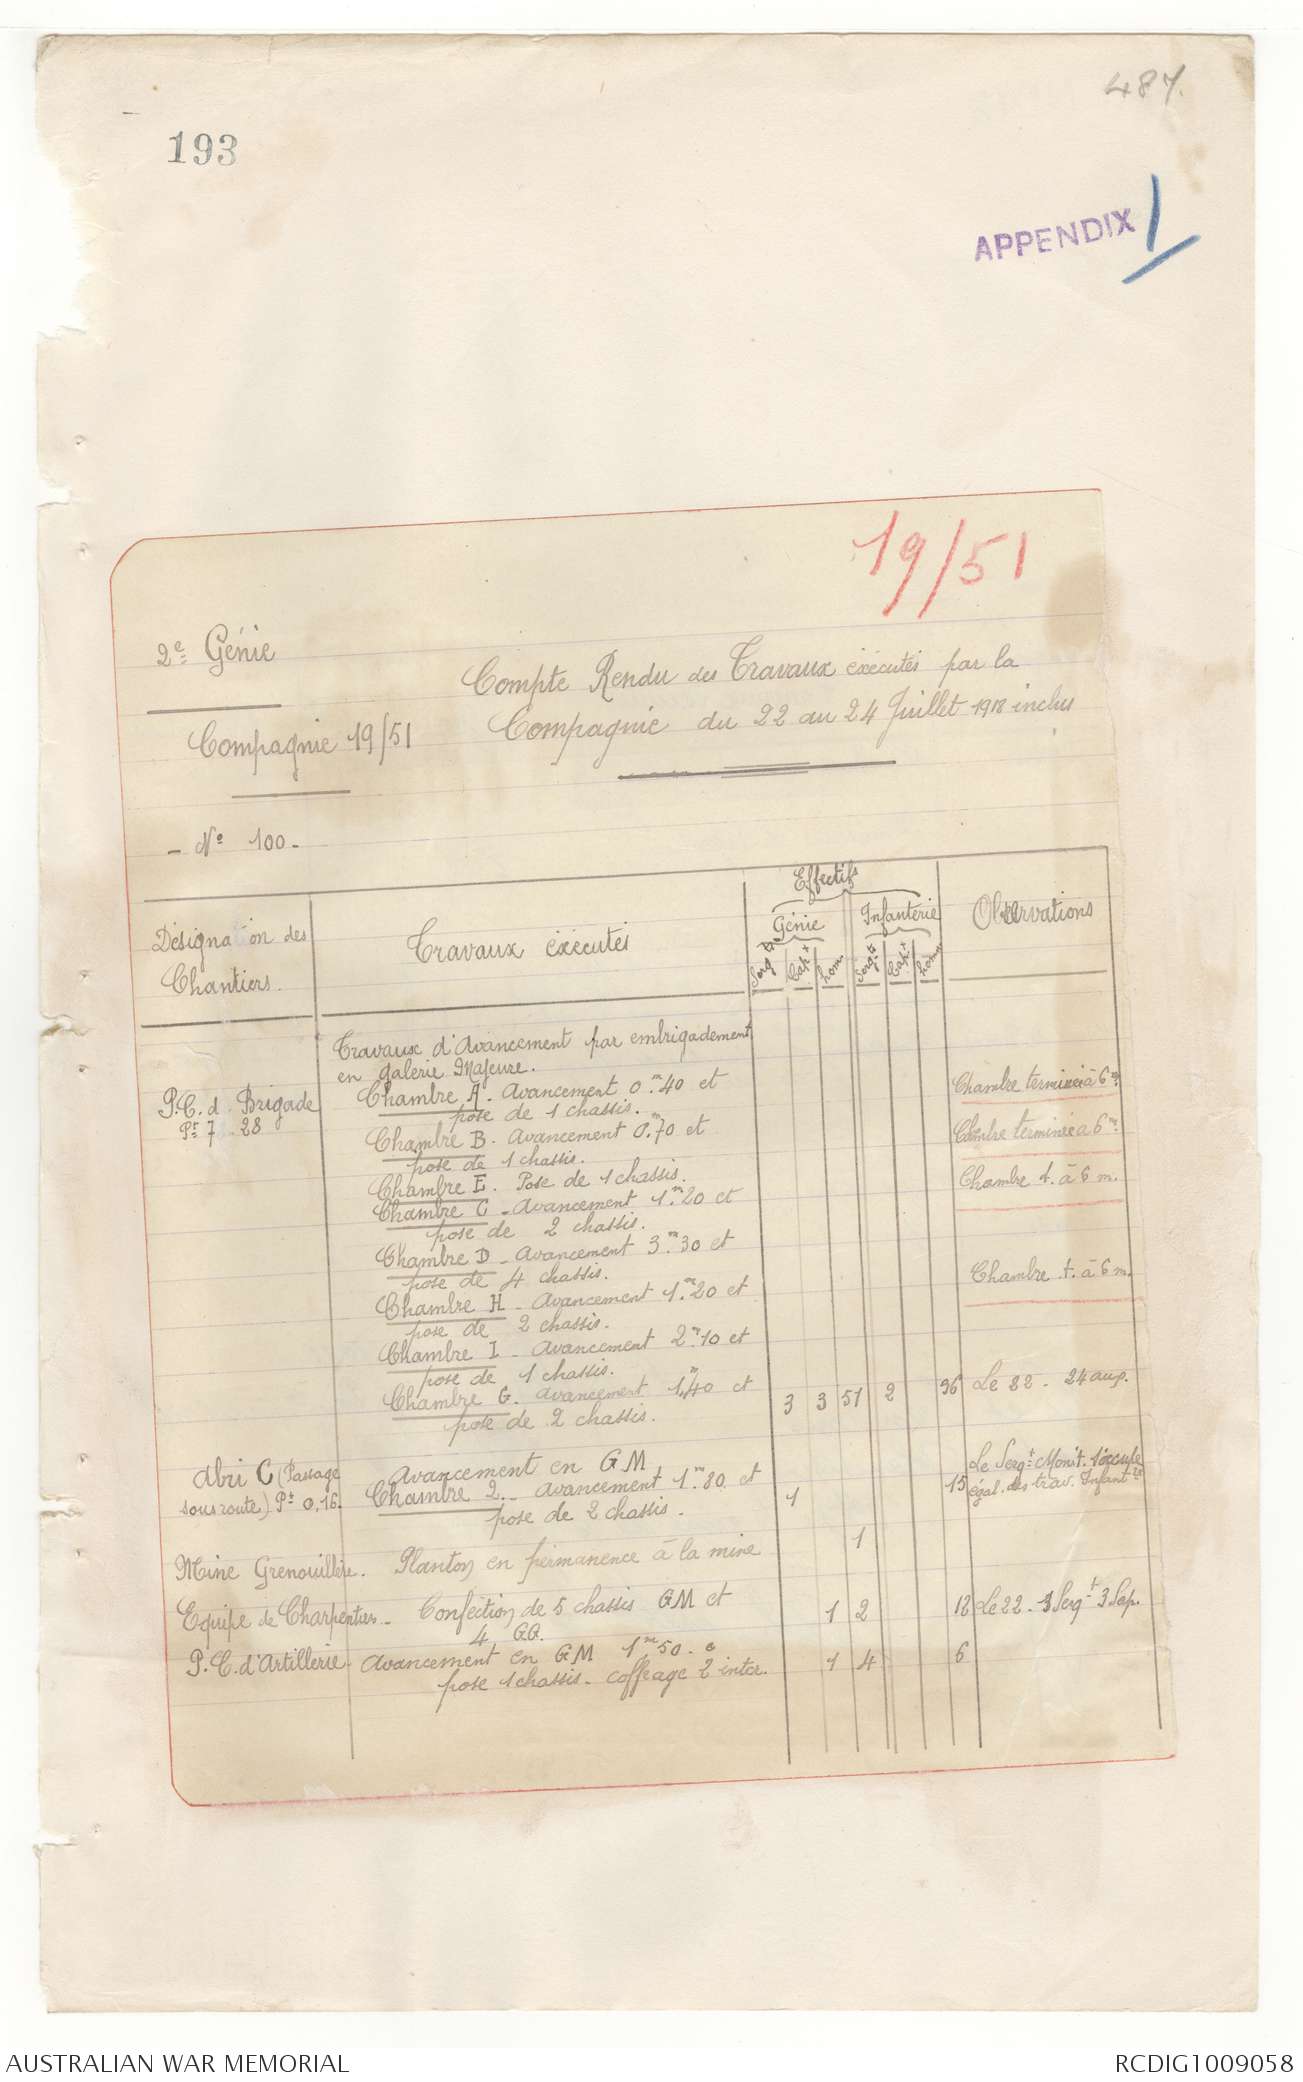 487.
193
APPENDIX 1
19/51
2e Génie
Compte Rendu des Travaux éxécutés par la
Compagnie 19/51
Compagnie du 22 au 24 Juillet 1918 inclus
- No 100 -
Désignation des
Chantiers.
Travaux éxécutés
Effectifs
Génie
Infanterie
Sergts
Capx
hom.
Sergts
Capx
hom.
Observations
Travaux d'Avancement par embrigadement
en galerie Majeure.
P.C. d. Brigade
Pt 7 . 28
Chambre A. Avancement 0m.40 et
pose de 1 chassis.
Chambre terminée à 6m.
Chambre B. Avancement 0m.70 et
pose de 1 chassis.
Chambre terminée à 6m.
Chambre E. Pose de 1 chassis.
Chambre t. à 6 m.
Chambre C - Avancement 1m.20 et
pose de 2 chassis.
Chambre D - Avancement 3m.30 et
pose de 4 chassis.
Chambre t. à 6 m.
Chambre H - Avancement 1m.20 et
pose de 2 chassis.
Chambre I - Avancement 2m.10 et
pose de 1 chassis.
Chambre G. avancement 1m.40 et
pose de 2 chassis.
3 3 51 2 96 Le 22 - 24 aup.
Abri C (Passage
sous route) Pt 0,16.
Avancement en GM
Chambre 2. - Avancement 1m.80 et
pose de 2 chassis.
1 15
Le Sergt Monit. s'occupe
égal. des trav. Infantie
Mine Grenouillère. Planton en permanence à la mine 1
Equipe de Charpentiers - Confection de 5 chassis GM et
4 GG.
1 2 12 Le 22 - 3 Sergt 3 Sap.
P.C. d'Artillerie - Avancement en GM 1m50 - e
pose 1 chassis - coffrage 2 inter.
1 4 6
AUSTRALIAN WAR MEMORIAL
RCDIG1009058